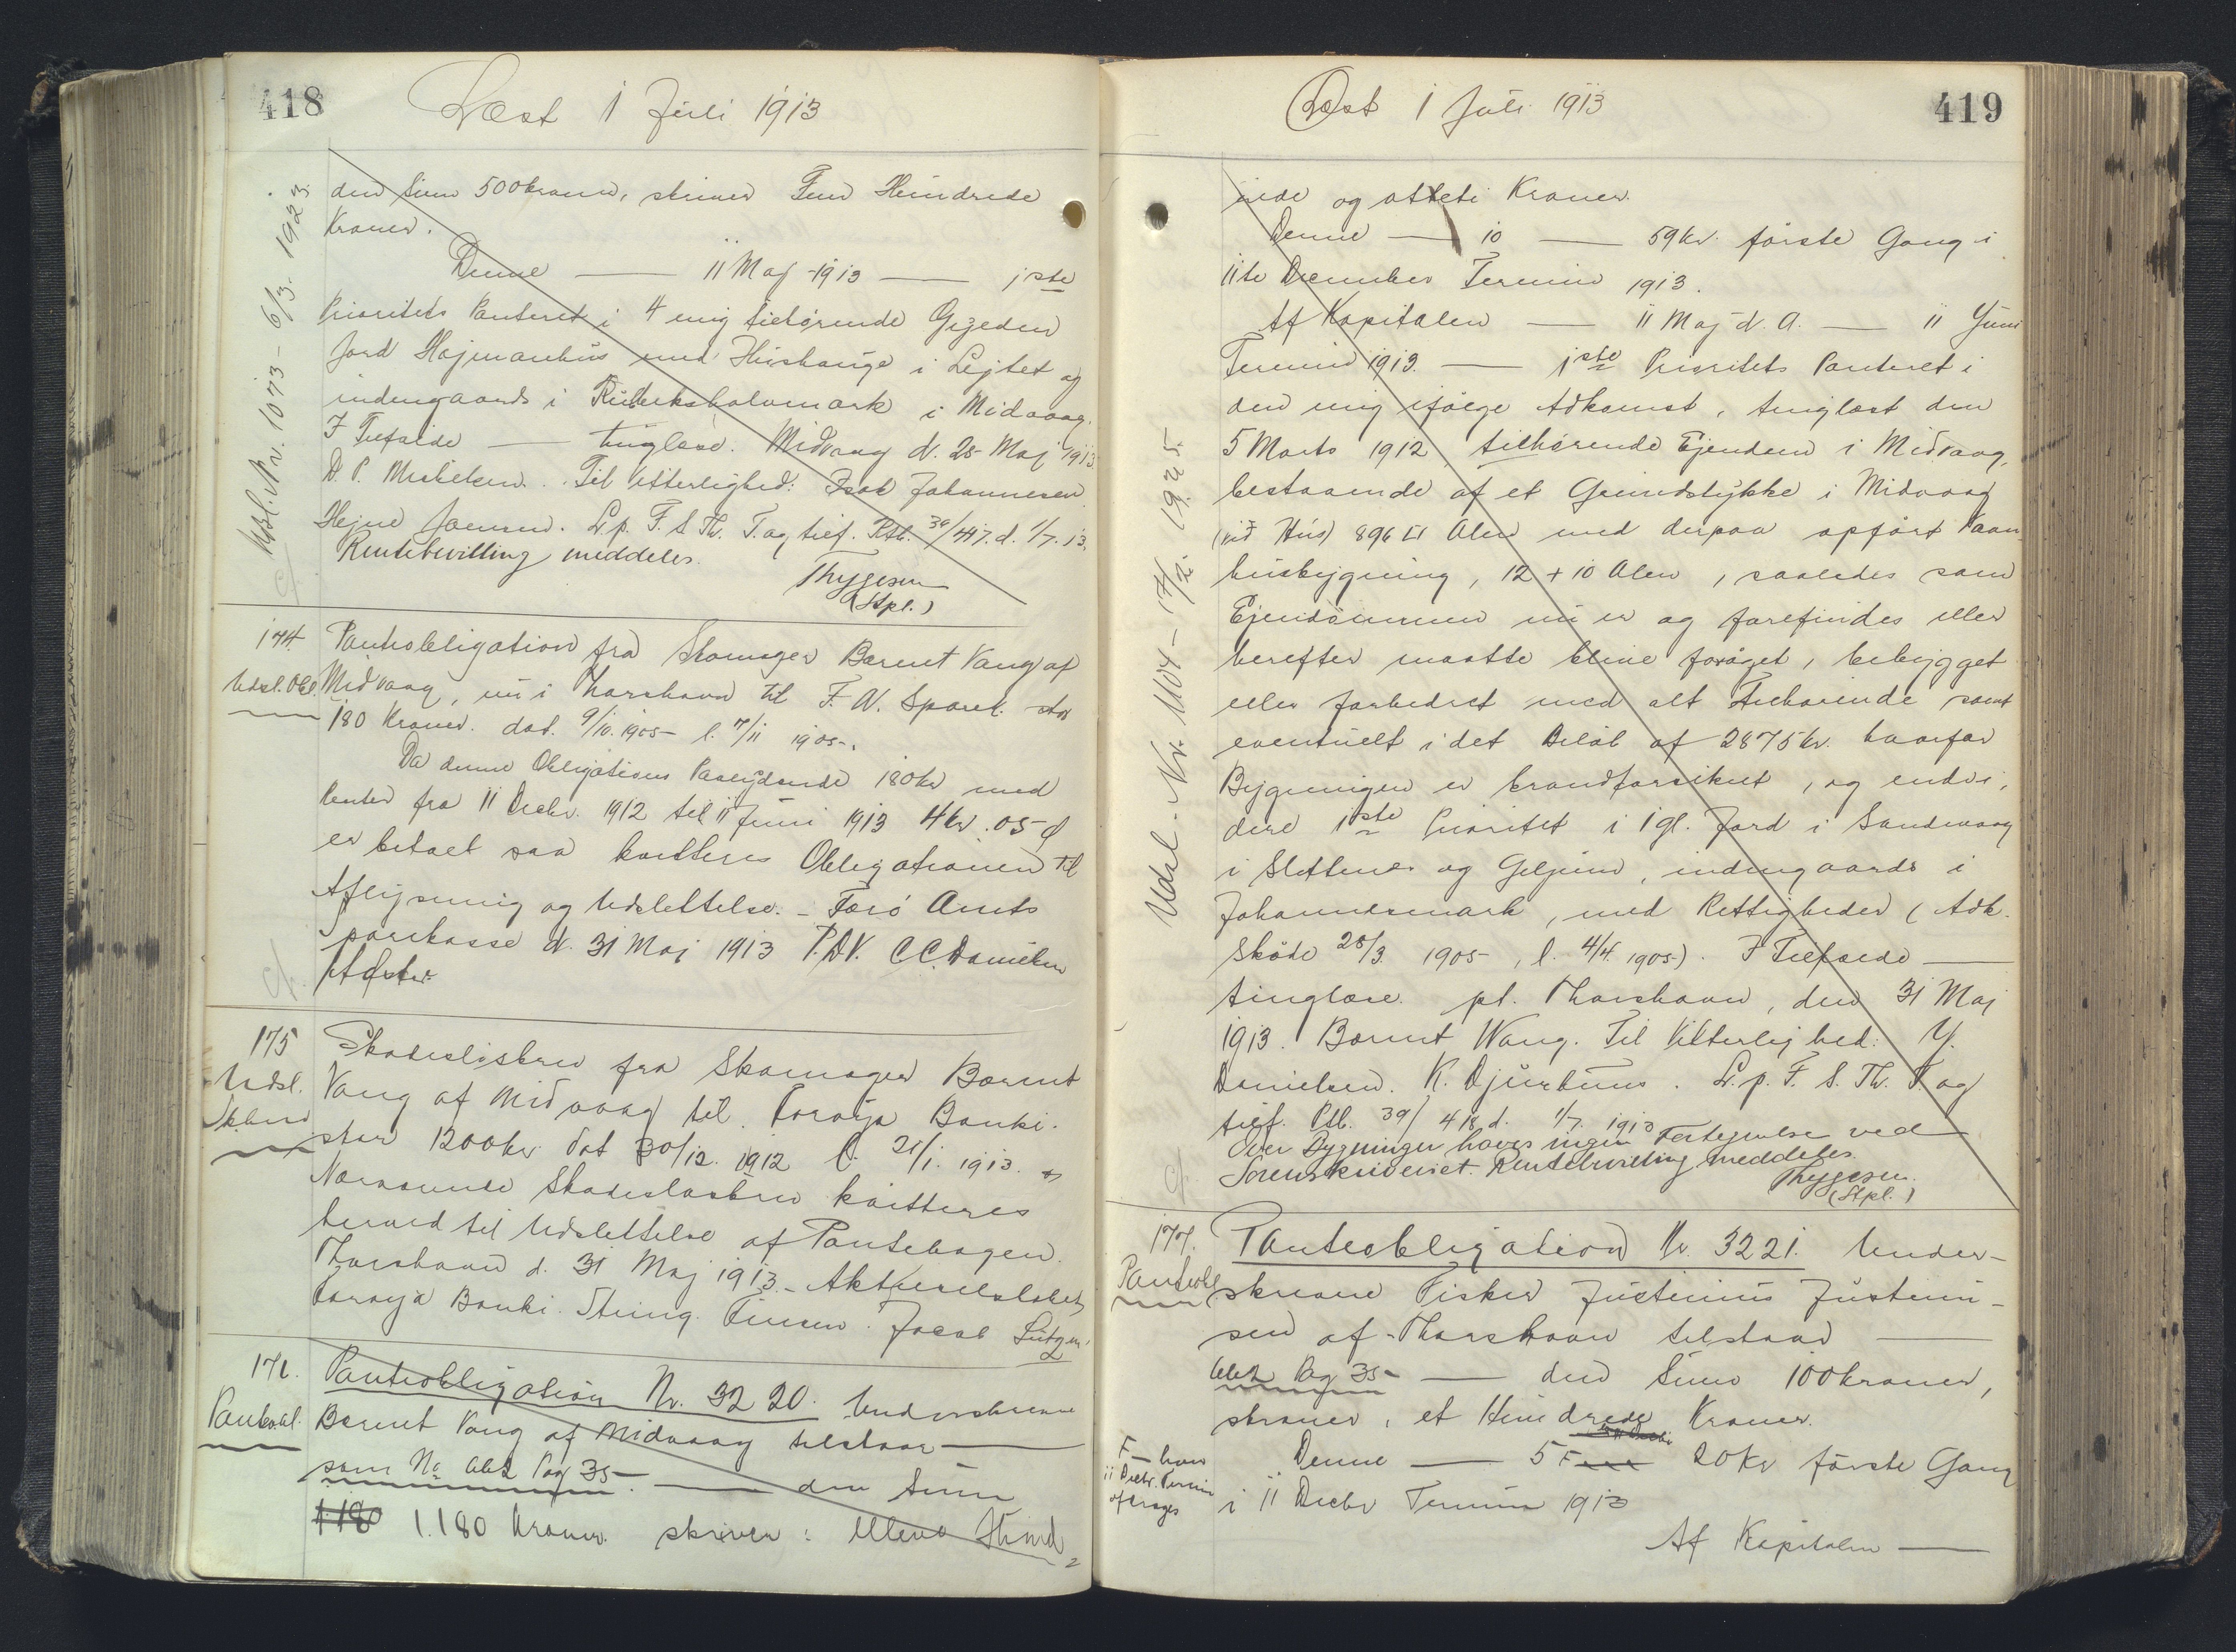 418
Læst 1 Juli 1913
den Sum 500 kroner, skriver Fem Hundrede
Kroner.
Denne — 11 Maj 1913 — 1ste
Prioritets Panteret i 4 mig tilhørende Gyeden
Jord Hojmanhus med Hushauge i Lejtet og
indengaards i Ruteksholvmark i Midvaag.
I Tilfælde — tinglæse. Midvaag d. 25 Maj 1913.
D. P. Mikkelsen. Til Vitterlighed: Isak Johannesen
Hejne Joensen. L.p. F. S. Th. T. og tilf. Ptb. 39/417. d. 1/7. 13.
Rentebevilling meddeles.
Thygesen
(Stpl.)
Udsl. Nr. 1073 - 6/3. 1923.
174.
Udsl. Obl.
Panteobligation fra Skomager Berent Vang af
Midvaag, nu i Thorshavn til F. A. Sparek. stor
180 Kroner. dat. 9/10. 1905 l. 7/11 1905.
Da denne Obligations Paalydende 180 kr med
Renter fra 11 Decbr. 1912 til 11 Juni 1913 4 kr. 05 Ø
er betalt saa kvitteres Obligationen til
Aflysning og Udslettelse. - Færø Amts
Sparekasse d. 31 Maj 1913 P.D.V. C.C. Danielsen
175
Udsl.
Sk.brev
Skadesløsbrev fra Skomager Berent
Vang af Midvaag til Føroya Banki.
stor 1200 kr dat 30/12. 1912 l. 21/1. 1913.
Nærværende Skadesløsbrev kvitteres
herved til Udslettelse af Pantebogen.
Thorshavn d. 31 Maj 1913. - Aktieselskabet
Føroya Banki. Thing. Finsen. Jacob Lützen.
176.
Panteobl.
Panteobligation Nr. 3220. Underskrevne
Berent Vang af Midvaag tilstaar —
som No. Abt Pag 35 — den Sum
1.180 1.180 Kroner. skriver: Elleve Hund
419
Læst 1 Juli 1913
rede og otteti Kroner.
Denne — 10 — 59 kr. første Gang i
11te December Termin 1913.
Af Kapitalen — 11 Maj d. A. — 11 Juni
Termin 1913. — 1ste Prioritets Panteret i
den mig ifølge Adkomst, tinglæst den
5 Marts 1912, tilhørende Ejendom i Midvaag,
bestaaende af et Grundstykke i Midvaag
(við Hús) 896 □ Alen med derpaa opført Vaan
husbygning, 12 + 10 Alen, saaledes som
Ejendommen nu er og forefindes eller
herefter maatte blive forøget, bebygget
eller forbedret med alt Tilhørende samt
eventuelt i det Beløb af 2875 kr. hvorfor
Bygningen er brandforsikret, og endvi,
dere 1ste Prioritet i 1 gl. Jord i Sandevaag
i Slettenes og Giljum, indengaards i
Johannesmark, med Rettigheder (Adk.
Skøde 28/3. 1905, l. 4/4. 1905). I Tilfælde —
tinglæse. pt. Thorshavn, den 31 Maj
1913. Berent Wang. Til Vitterlighed: Y.
Danielsen. K. Djurhuus. L. p. F. S. Th. T. og
tilf. Ptb. 39/418. d. 1/7. 1913
Over Bygninger haves ingen Fortegnelse ved
Sorenskriveriet. Rentebevilling meddeles.
Thygesen.
(Stpl.)
Udsl. Nr. 1104 - 14/12. 1925.
177.
Panteobl.
Panteobligation Nr. 3221. Under-
skrevne Fisker Justinus Justinu-
sen af Thorshavn tilstaar —
Abt Pag 35 — den Sum 100 kroner,
skriver, et Hundrede Kroner.
Denne — 5 F 20 Kr første Gang
i 11 Decbr Termin 1913
F — hvers
11 Decbr. Termin
afdrages
Af Kapitalen —